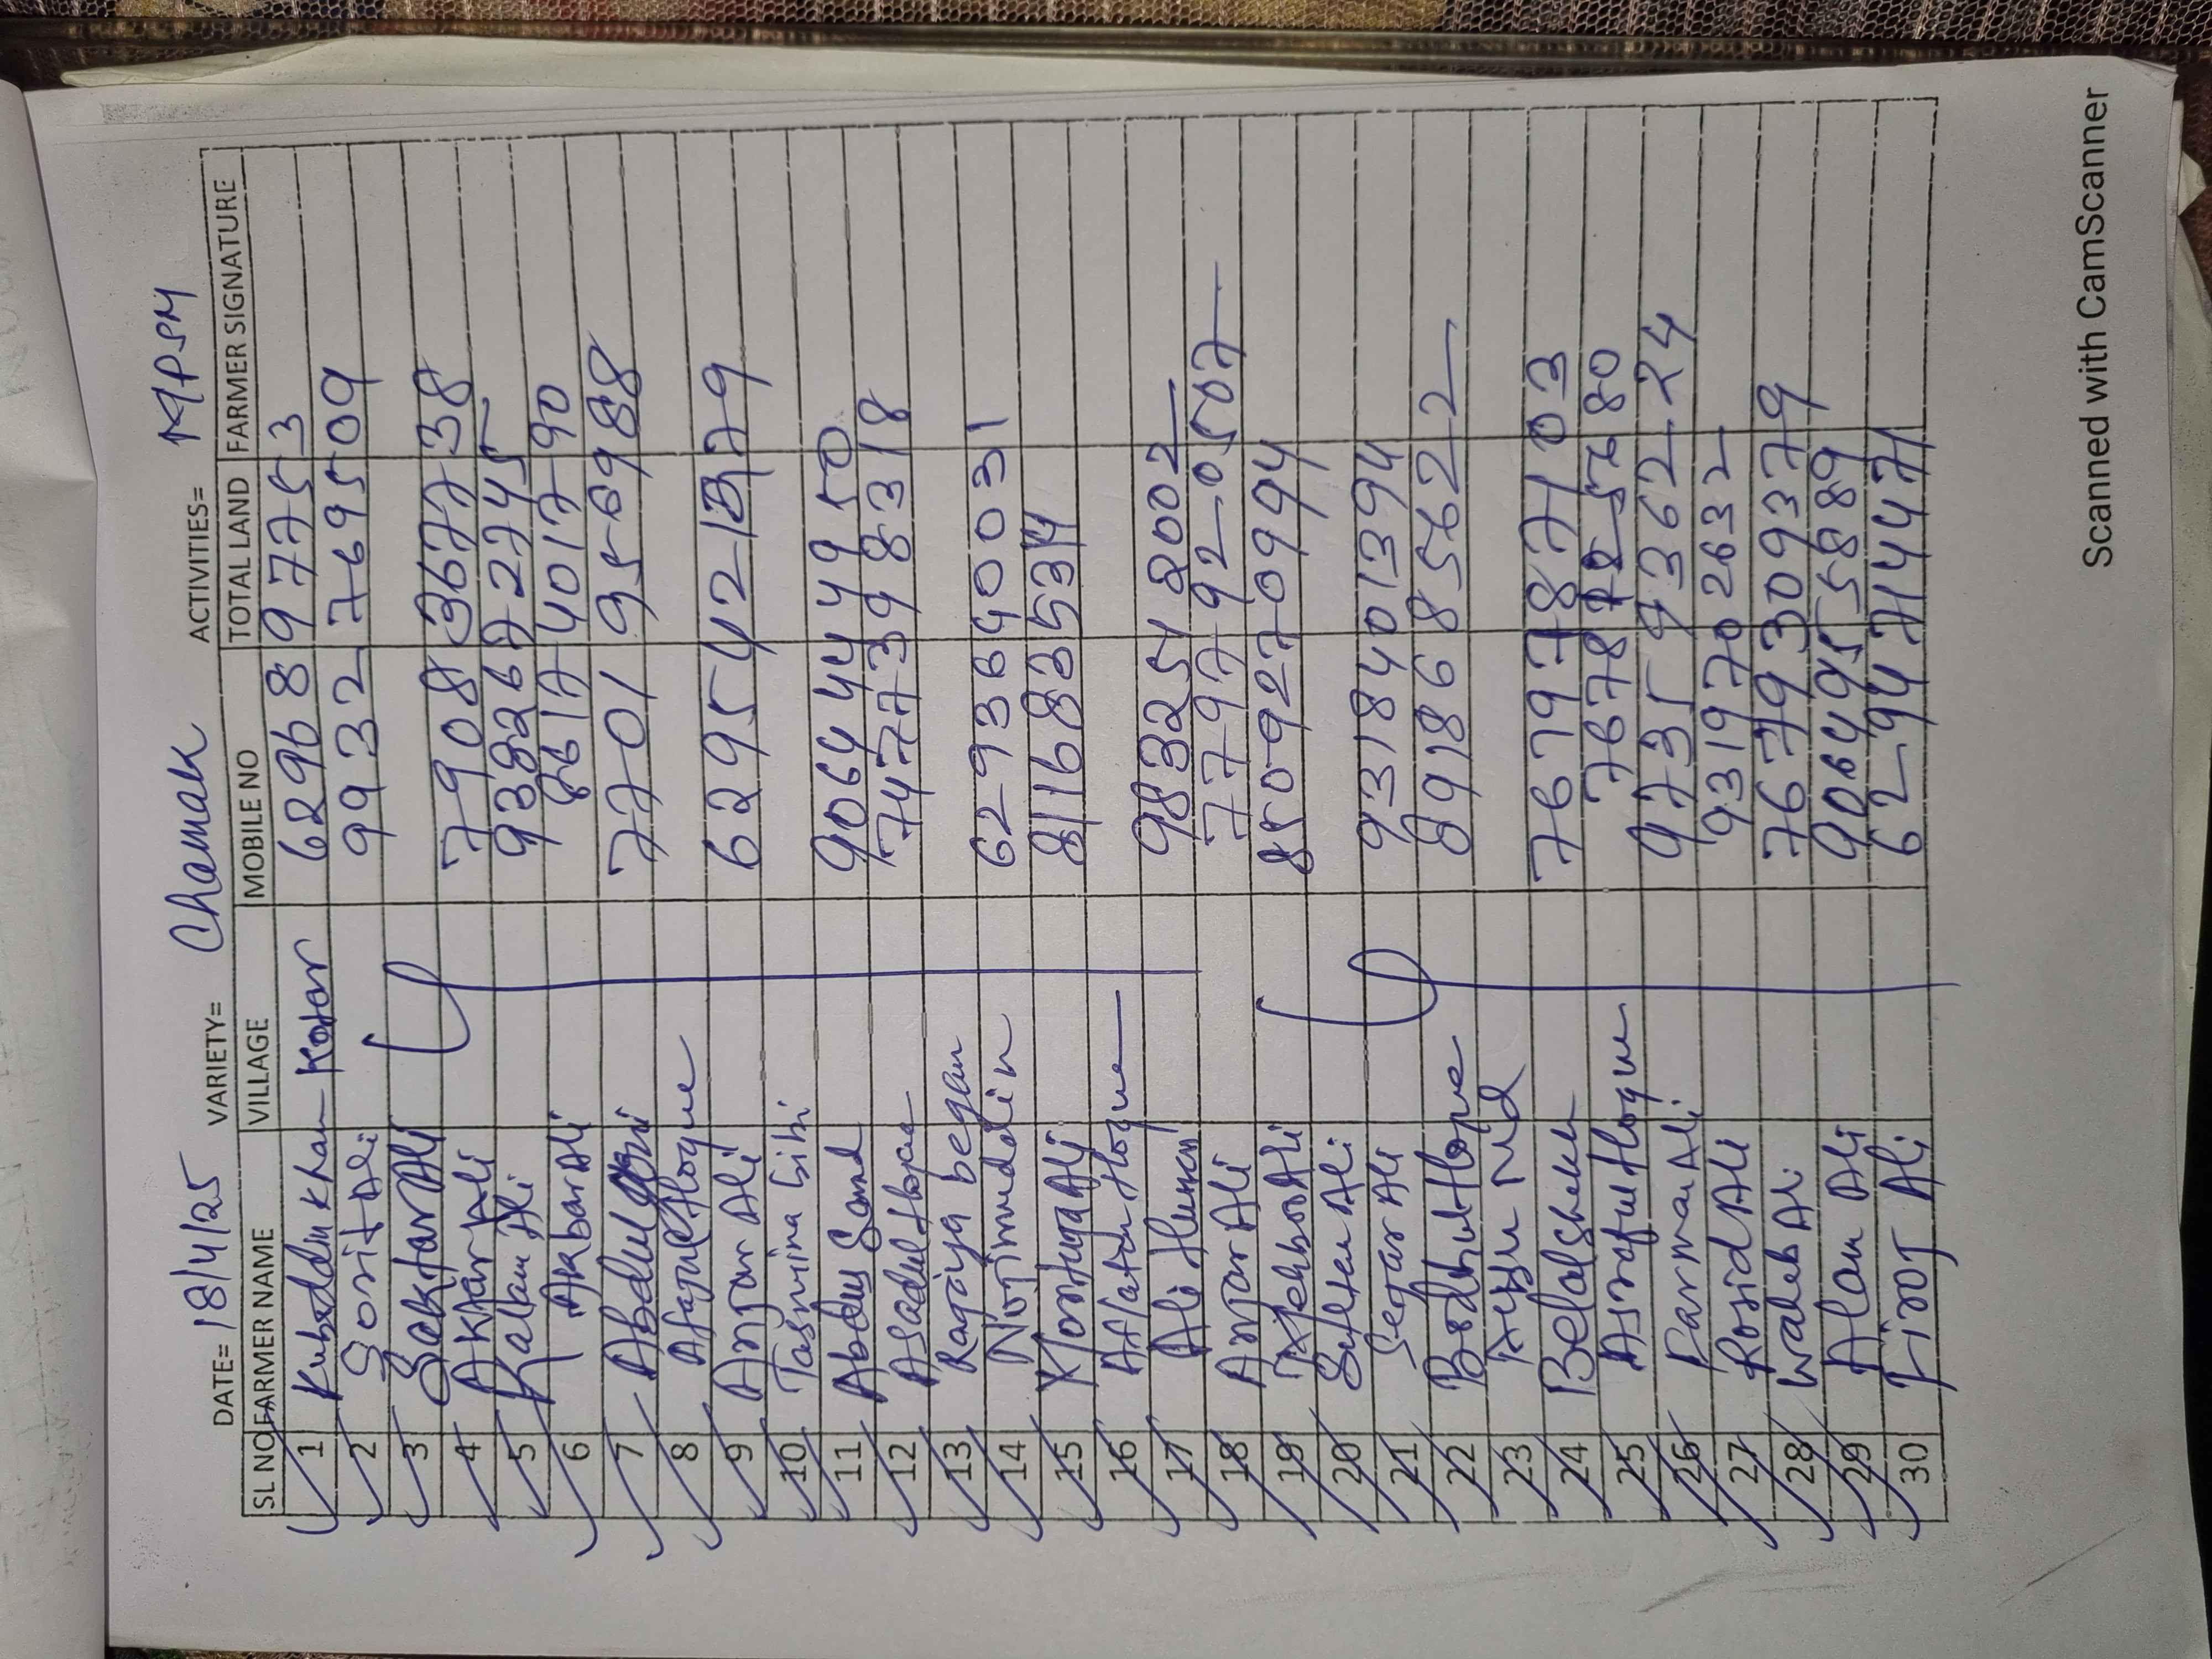 DATE= 18/4/25 VARIETY= Chamak ACTIVITIES=
SL NO FARMER NAME VILLAGE MOBILE NO TOTAL LAND FARMER SIGNATURE
1 Kuboddin Khan Kotar 6296897753
2 Sorit Ali 9932769509
3 Saktar Ali
4 Aktar Ali 7908367738
5 Kalam Ali 9382672745
6 Akbar Ali 8617401790
7 Abdul Goni 7701956988
8 Afajul Hoque
9 Anjar Ali 6295421379
10 Tasmina bibi
11 Abdus Samad 9064444950
12 Asadul Hoque 7477398318
13 Rajiya begum
14 Nojimuddin 6293640031
15 Montuja Ali 8116835314
16 Aftab Hoque
17 Ali Hussain 9832518002
18 Anjar Ali 7797920507
19 Ali 8509270994
20 Ali
21 Segar Ali 9318401394
22 Bodrul Hoque 8918685622
23 Md
24 Belal Sheikh 7679787103
25 Asraful Hoque 76787
26 Farman Ali 9735936224
27 Rosid Ali 9319702632
28 Waleb Ali 7679309379
29 Alam Ali 9064955889
30 Firoj Ali 6294714471
Scanned with CamScanner